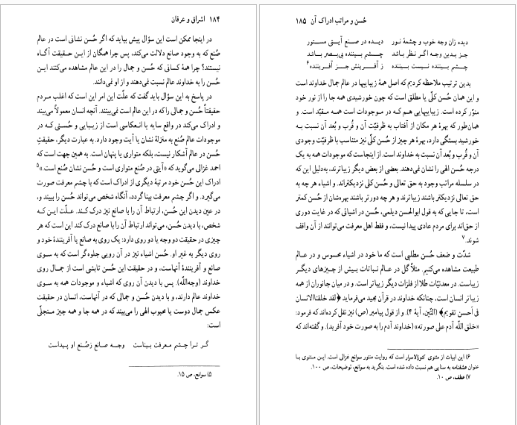 ۱۸۴ اشراق و عرفان
در اینجا ممکن است این سؤال پیش بیاید که اگر حُسن نشانی است در عالم
صُنع که به وجود صانع دلالت می‌کند، پس چرا همگان از این حقیقت آگاه
نیستند؟ چرا همهٔ کسانی که حُسن و جمال را در این عالم مشاهده می‌کنند این
حُسن را به خداوند عالم نسبت نمی‌دهند و از او نمی‌دانند.
در پاسخ به این سؤال باید گفت که علّت این امر این است که اغلب مردم
حقیقتاً حُسن و جمالی را که در این عالم است نمی‌بینند. آنچه انسان معمولاً می‌بیند
و ادراک می‌کند در واقع سایه یا انعکاسی است از زیبایی و حُسنی که در
موجودات عالم صُنع به منزلهٔ نشان یا آیت وجود دارد. به عبارت دیگر، حقیقتِ
حُسن در عالم آشکار نیست، بلکه متواری و یا پنهان است. به همین جهت است که
احمد غزالی می‌گوید که «آیتی در صُنع متواری است و حُسن نشان صُنع است»۱۵
ادراک این حُسن خود مرتبهٔ دیگری از ادراک است که با چشم معرفت صورت
می‌گیرد. و اگر چشم معرفت بینا گردد، آنگاه شخص می‌تواند حُسن را ببیند و،
در عین دیدن این حُسن، ارتباط آن را با صانع نیز درک کند. علّت این که
شخص، با دیدن حُسن، می‌تواند ارتباط آن را با صانع درک کند این است که هر
چیزی در حقیقت دو وجه یا دو روی دارد: یک روی به صانع یا آفرینندهٔ خود و
روی دیگر به غیر او. حُسن اشیاء نیز در آن رویی جلوه‌گر است که به سوی
صانع و آفرینندهٔ آنهاست، و در حقیقت این حُسن تابشی است از جمال روی
خداوند (وجه‌الله). پس با دیدن آن روی که اشیاء و موجودات همه به سوی
خداوند عالم دارند، و با دیدن حُسن و جمالی که در آنهاست، انسان در حقیقت
عکس جمال دوست یا محبوب الهی را می‌بیند که در همه جا و همه چیز متجلّی
است:
گر ترا چشم معرفت بیناست وجه صانع ز صُنع او پیداست
۱۵ سوانح، ص ۱۵.
حُسن و مراتب ادراک آن ۱۸۵
دیده زان وجه خوب و چشمهٔ نور دیده در صنع آیتی مستور
جز بدین وجه اگر نظر باشد چشم بیننده بی‌بصر باشد
چشم بیننده نیست بیننده ز آفرینش جز آفریننده۱۶
بدین ترتیب ملاحظه کردیم که اصل همهٔ زیباییها در عالم جمال خداوند است
و این همان حُسن کلّی یا مطلق است که چون خورشیدی همه جا را از نور خود
منوّر کرده است. زیباییهایی هم که در موجودات است همه مقیّد است. و
همان‌طور که بهرهٔ هر مکان از آفتاب به ظرفیّت آن و قُرب و بُعد آن نسبت به
خورشید بستگی دارد، بهرهٔ هر چیز از حُسن کلّی نیز متناسب با ظرفیّت وجودی
آن و قُرب و بُعد آن نسبت به خداوند است. از اینجاست که موجودات همه به یک
درجه حُسن الهی را نشان نمی‌دهند. بعضی از بعض دیگر زیباترند، به‌دلیل این که
در سلسله مراتب وجود به حق تعالی و حُسن کلّی نزدیکترند. و اشیاء هر چه به
حق تعالی نزدیکتر باشند زیباترند و هر چه دورتر باشند بهره‌شان از حُسن کمتر
است، تا جایی که به قول ابوالحسن دیلمی، حُسن در اشیائی که در غایت دوری
از حق‌اند برای مردم عادی پیدا نیست، و فقط اهل معرفت می‌توانند از آن واقف
شوند.۱۷
شدّت و ضعف حُسن مطلبی است که ما خود در اشیاء محسوس و در عالم
طبیعت مشاهده می‌کنیم. مثلاً گُل در عالم نباتات بیش از چیزهای دیگر
زیباست. در معدنیّات طلا از فلزات دیگر زیباتر است. و در میان جانوران از همه
زیباتر انسان است. چنانکه خداوند در قرآن مجید می‌فرماید ﴿لقد خلقنا الانسان
فی احسن تقویم﴾ (التّین، آیهٔ ۴). و از قول پیامبر (ص) نیز نقل کرده‌اند که فرمود:
«خلق اللّه آدم علی صورته» (خداوند آدم را به صورت خود آفرید). و گفته‌اند که
۱۷ عطف، ص ۱۰.